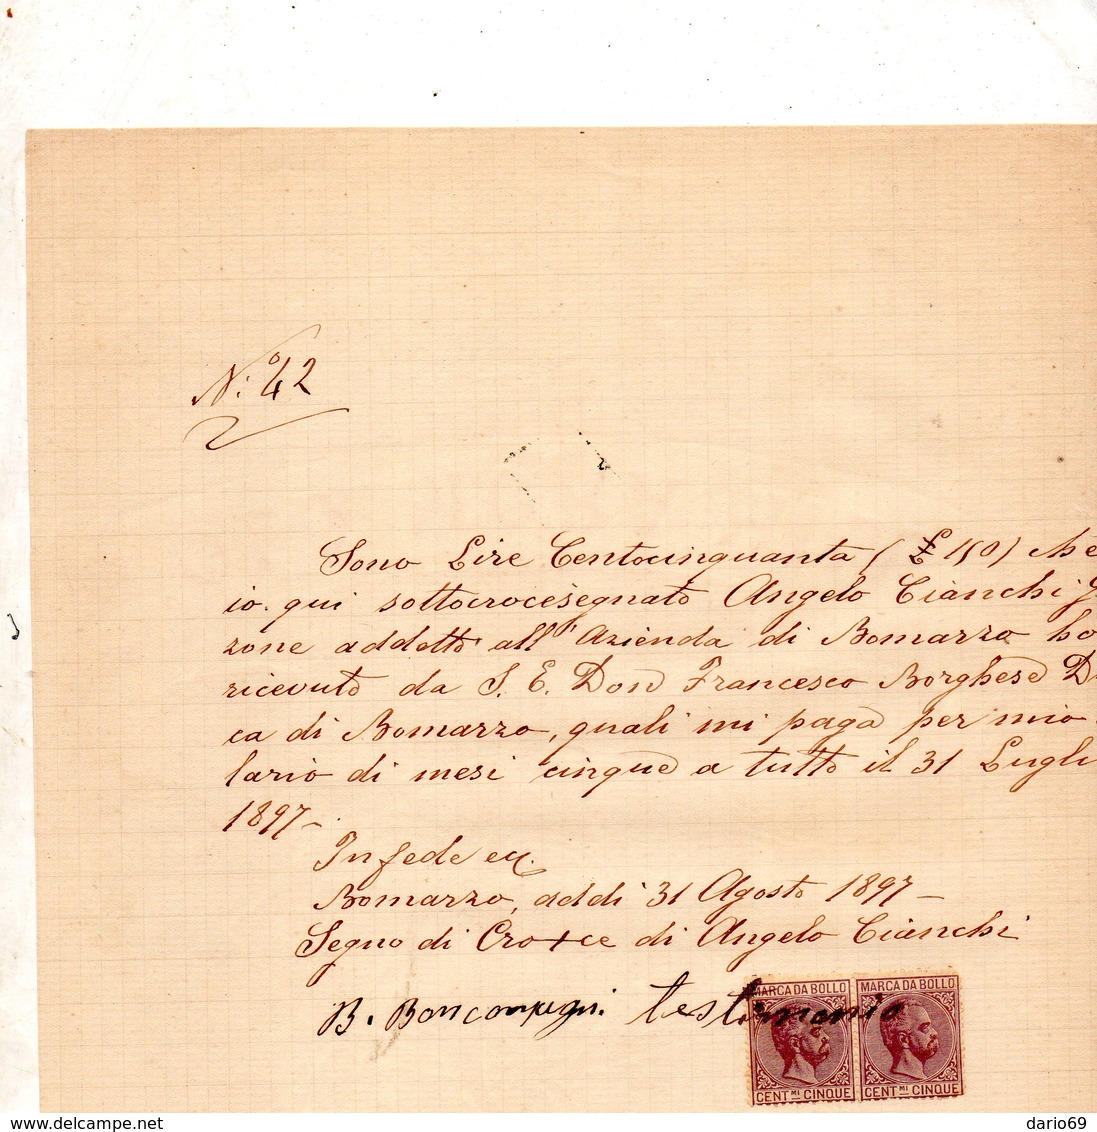 N.º 42
Sono Lire Centocinquanta (£ 150) che
io qui sottocrocesegnato Angelo Cianchi
zone addetto all'Azienda di Bomarzo ho
ricevuto da S. E. Don Francesco Borghese D
ca di Bomarzo, quali mi paga per mio
lario di mesi cinque a tutto il 31 Lugli
1897 -
In fede ecc.
Bomarzo, addì 31 Agosto 1897 -
Segno di Cro+ce di Angelo Cianchi
B. Boncompagni testimonio
MARCA DA BOLLO MARCA DA BOLLO
CENT.MI CINQUE CENT.MI CINQUE
delcampe.net
dario69